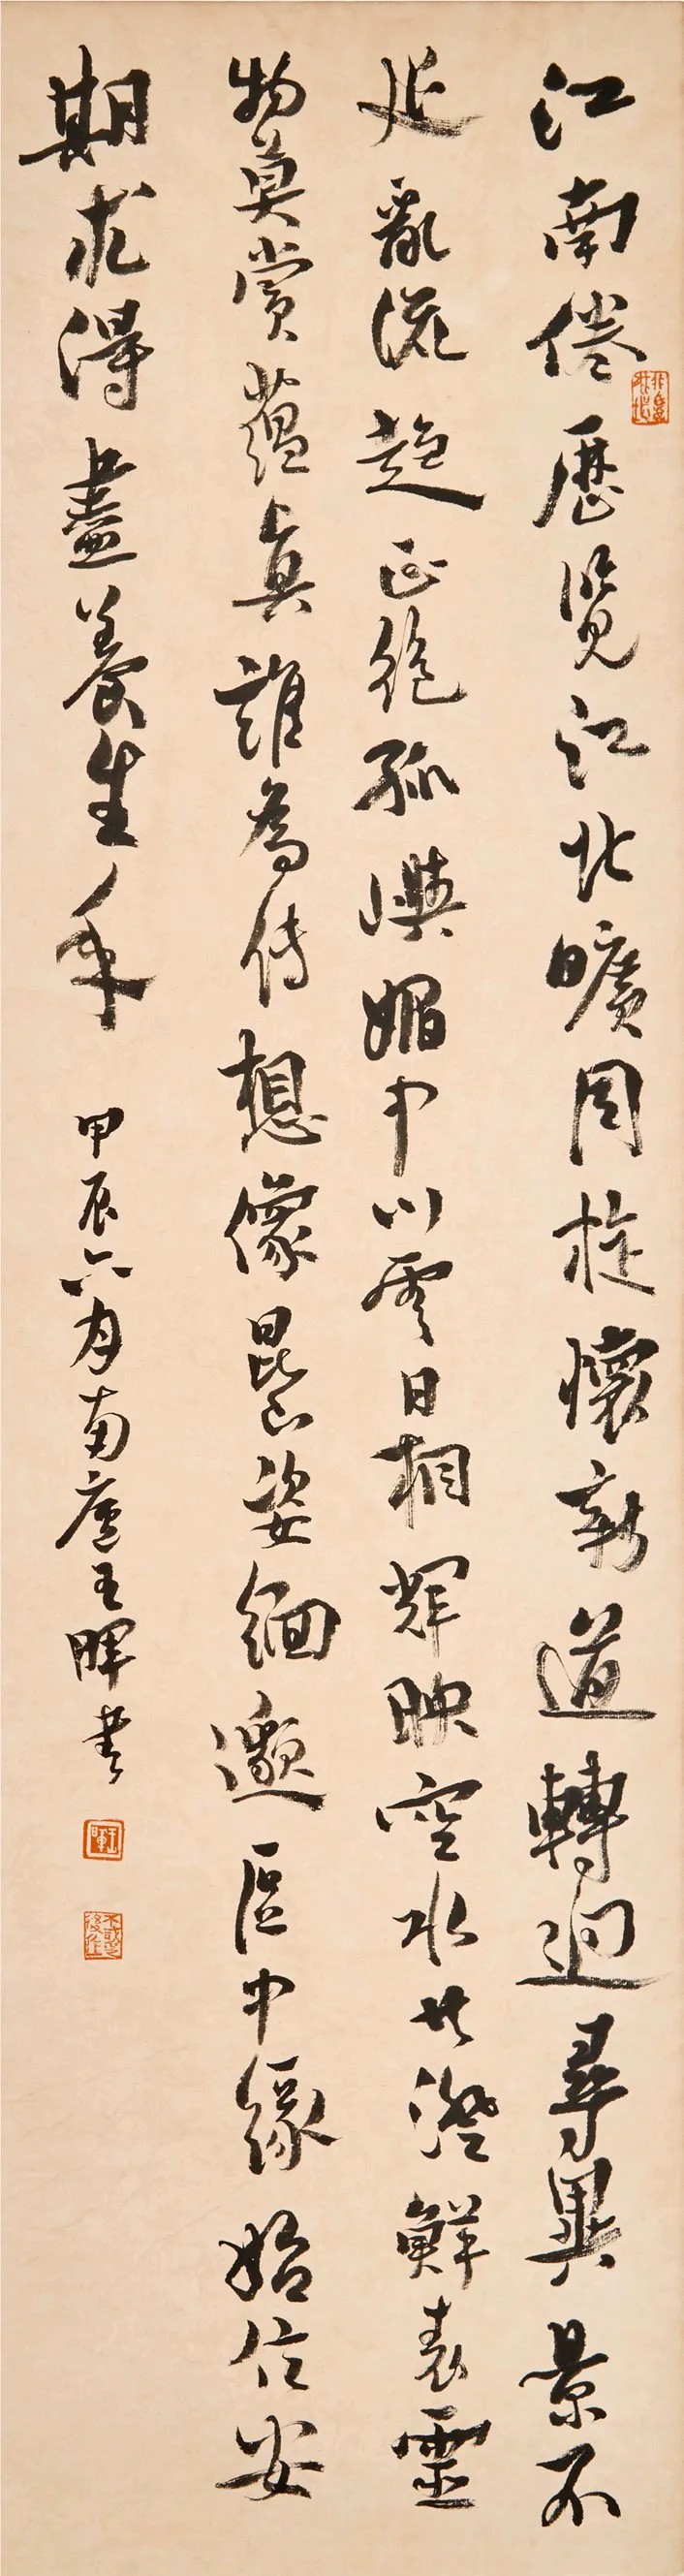 江南倦歷覽江北曠周旋懷新道轉迥尋異景不
延亂流趨正絕孤嶼媚中川雲日相輝映空水共澄鮮表靈
物莫賞蘊真誰為傳想像昆山姿緬邈區中緣始信安
期朮得盡養生年 甲辰六月南廬王暉書
王暉
不惑之後作